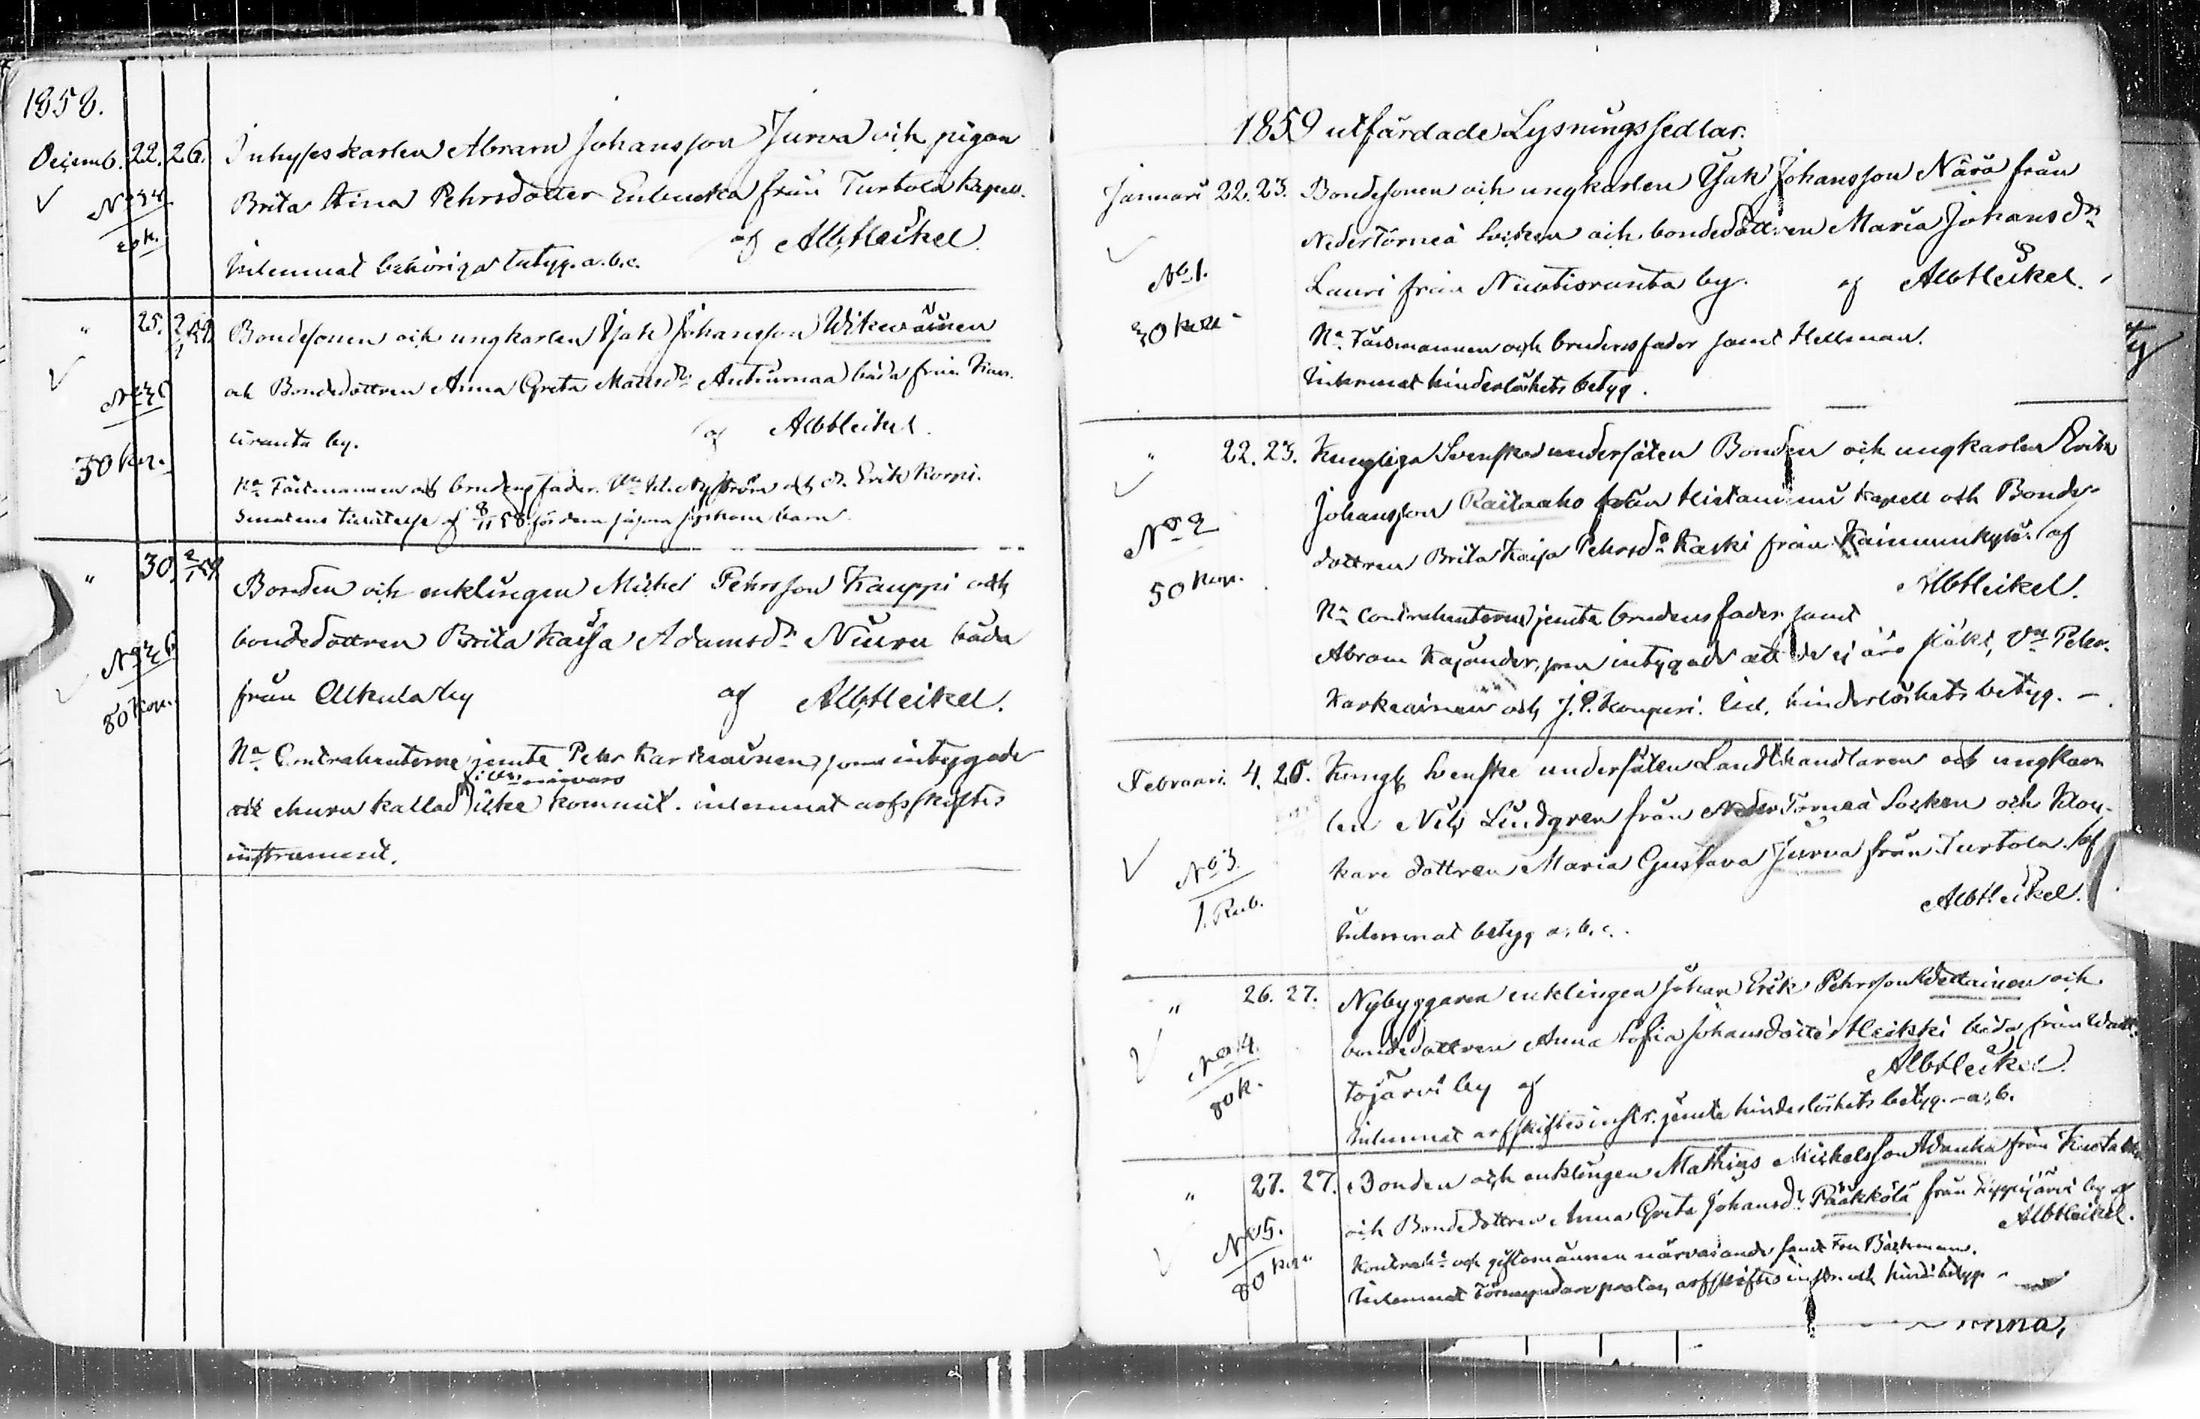 1858.
Decemb. 22. 26. Inhyses karlen Abram Johansson Jurva och pigan
No 34 Brita Stina Pehrsdotter från Turtola Kapell.
af Alb Heikel
Inlemnat behöriga betyg. a. b. c.
" 25. 2/1 59 Bondesonen och ungkarlen Isak Johansson Wikeväinen
och Bondedottren Anna Greta Matsdr. båda från
No 35
uranta by. af Alb Heikel.
30 kop.
Nä. Talesmannen och brudens fader. och Erik Korpi.
Senatens tillåtelse af 8/11 58 för dem såsom barn.
" 30. 2/1 59 Bonden och enklingen Michel Pehrsson Kauppi och
bondedottren Brita Kaisa Adamsdr. Niuru båda
No 36
från Alkula by af Alb Heikel.
80 kop.
Nä. Contrahenterne jemte Pehr Karkiainen, som intygade
att churu kallad icke kommit. inlemnat arfsskiftes
instrument.
1859 utfärdade Lysningssedlar.
Januari 22. 23. Bondesonen och ungkarlen Isak Johansson Närä från
Nedertorneå Socken och bondedottren Maria Johansdr
No 1. Lauri från Nuotioranta by. af Alb Heikel.
30 kop. Nä. Talesmannen och brudens fader samt Hellman.
Inlemnat hinderlöshets betyg.
" 22. 23. Kungliga Svenska undersåten Bonden och ungkarlen Erik
Johansson Raitaaho från Hietaniemi Kapell och Bonde-
No 2 dottren Brita Kaisa Pehrsdr Kaski från Kainuunkylä. af
50 kop. Alb Heikel.
Nä Contrahenterne jemte brudens fader samt
Abram Kajander, som intygade att de ej äro släkt, Peter
Karkiainen och J. P. hinderlöshets betyg. –
Februari. 4. 20. Kungl. Svenske undersåten Landthandlaren och ungkar-
len Nils Lindgren från Neder Torneå Socken och Kloc-
No 3. kare dottren Maria Gustava Jurva från Turtola. af
1. Rub. Alb Heikel.
Inlemnat betyg a. b. c.
" 26. 27. Nybyggaren enklingen Johan Erik Pehrsson och
bondedottren Anna Sofia Johansdotter Heikki båda från
No 4. tojärvi by af Alb Heikel.
80 k. Inlemnat arfskiftes instr. jemte hinderlöshets betyg. – a. b.
" 27. 27. Bonden och enklingen Mathias Michelsson från
och Bondedottren Anna Greta Johansdr. Pääkkölä från by af
No 5. Alb Heikel.
80 kop. och giftomannen närvarande samt Bäckman.
Inlemnat arfskiftes instr. och